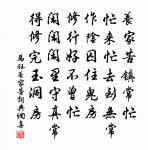 養家苦鎮常忙
忙來忙去到無常
作陰囚住鬼房
修行好不曾忙
閑閑裏守真常
得修完玉洞房
馬鈺養家苦詞典網集